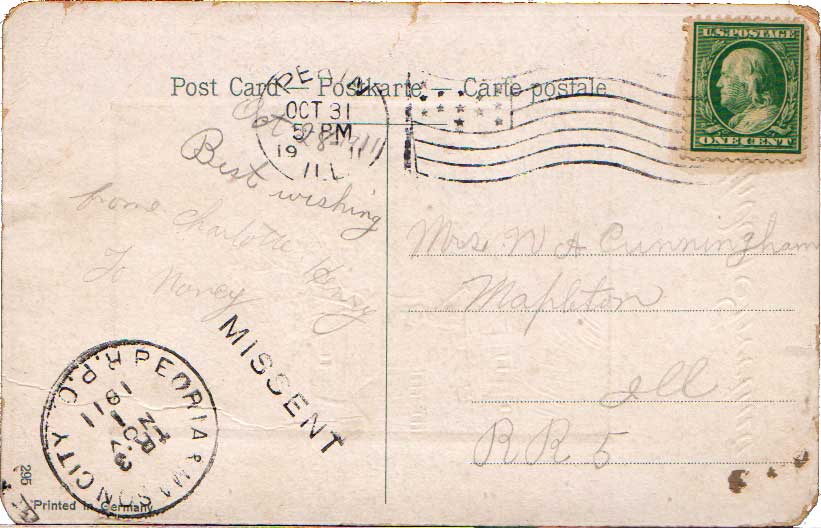 U.S. POSTAGE
ONE CENT
Post Card — Postkarte — Carte postale
PEORIA
OCT 31
5 PM
19 11
ILL
Oct 28 - 1911
Best wishing
frome Charlotte Henry
To Noney
Mrs. W A Cunningham
Mapleton
Ill
RR 5
MISSENT
PEORIA & MASON CITY R.P.O.
295
Printed in Germany